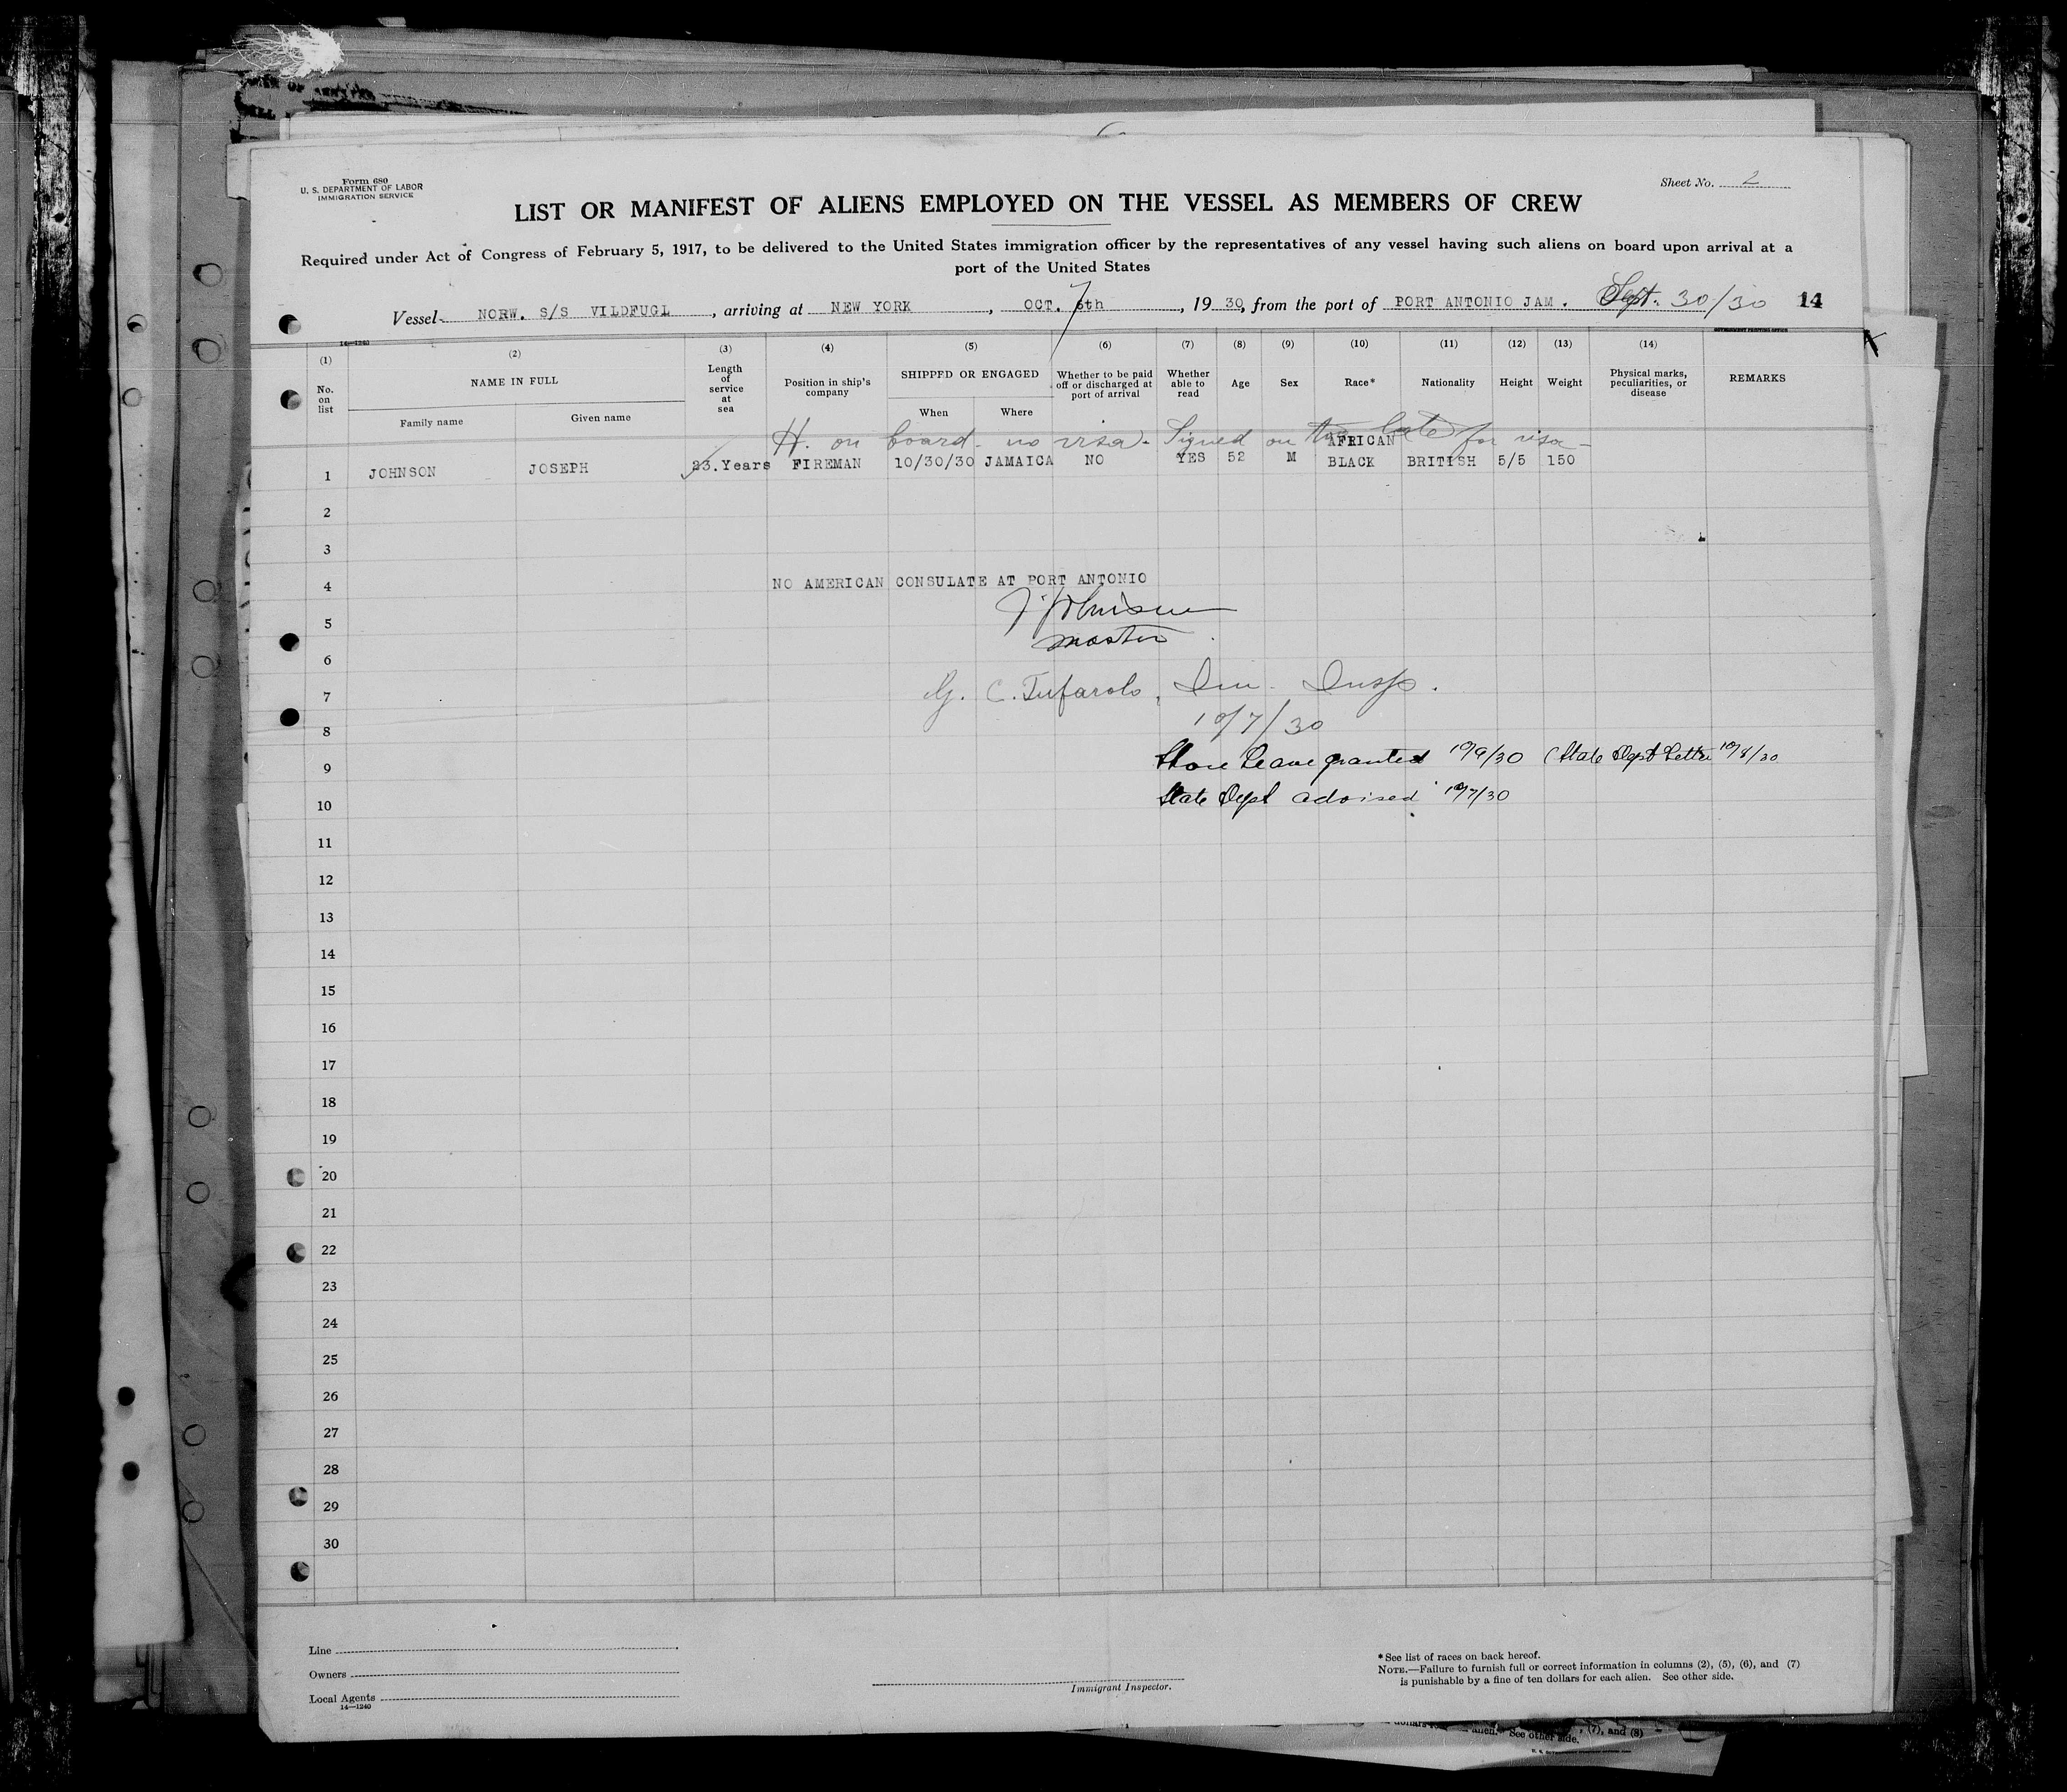 Form 680
U. S. DEPARTMENT OF LABOR
IMMIGRATION SERVICE
Sheet No. 2
LIST OR MANIFEST OF ALIENS EMPLOYED ON THE VESSEL AS MEMBERS OF CREW
Required under Act of Congress of February 5, 1917, to be delivered to the United States immigration officer by the representatives of any vessel having such aliens on board upon arrival at a
port of the United States
Vessel NORW. S/S VILDFUGL, arriving at NEW YORK, OCT. 6th 7, 1930, from the port of PORT ANTONIO JAM. Sept. 30/30 14
14—1240
(1) (2) (3) (4) (5) (6) (7) (8) (9) (10) (11) (12) (13) (14)
No. on list NAME IN FULL Length of service at sea Position in ship's company SHIPPED OR ENGAGED Whether to be paid off or discharged at port of arrival Whether able to read Age Sex Race* Nationality Height Weight Physical marks, peculiarities, or disease REMARKS
Family name Given name When Where
H. on board - no visa. Signed on too late for visa -
AFRICAN
1 JOHNSON JOSEPH 23.Years FIREMAN 10/30/30 JAMAICA NO YES 52 M BLACK BRITISH 5/5 150
2
3
4 NO AMERICAN CONSULATE AT PORT ANTONIO
5
master
6
7 C. Tufarolo, Imm. Insp.
8 10/7/30
9 Shore Leave granted 10/9/30 (State Dept Letter 10/8/30
10 State Dept advised 10/7/30
11
12
13
14
15
16
17
18
19
20
21
22
23
24
25
26
27
28
29
30
Line
Owners
Local Agents
14—1240
Immigrant Inspector.
*See list of races on back hereof.
NOTE.—Failure to furnish full or correct information in columns (2), (5), (6), and (7)
is punishable by a fine of ten dollars for each alien. See other side.
alien. See other side. , (7), and (8)